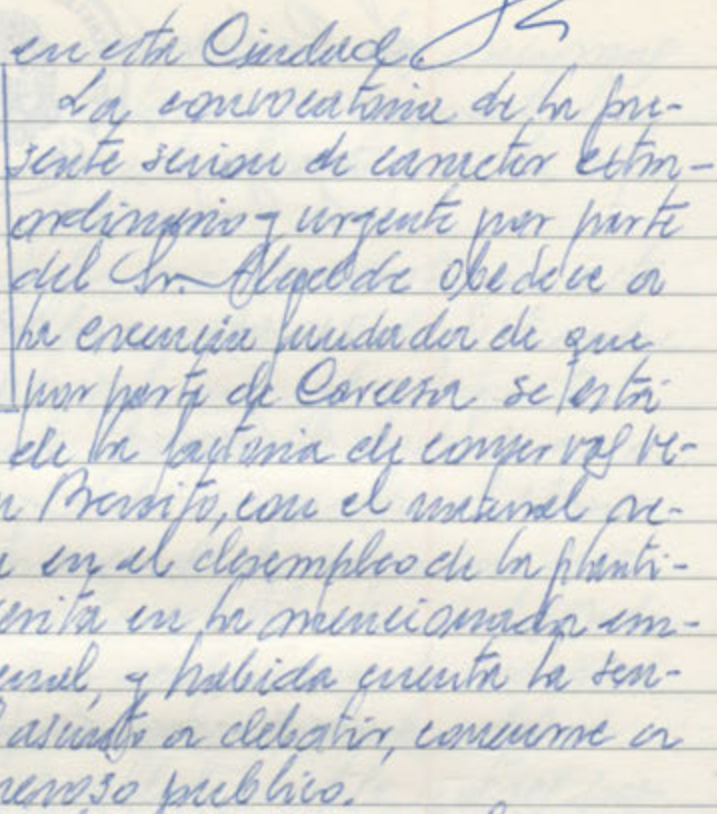 en esta Ciudad.
La convocatoria de la pre-
sente sesion de caracter extra-
ordinario y urgente por parte
del Sr. Alcalde obedece a
la creencia fundada de que
por parte de Carcesa se está
de la factoria de conservas ve-
Benito, con el natural re-
en el desempleo de la planti-
crita en la mencionada em-
y habida cuenta la sen-
asunto a debatir, concurre a
neroso publico.